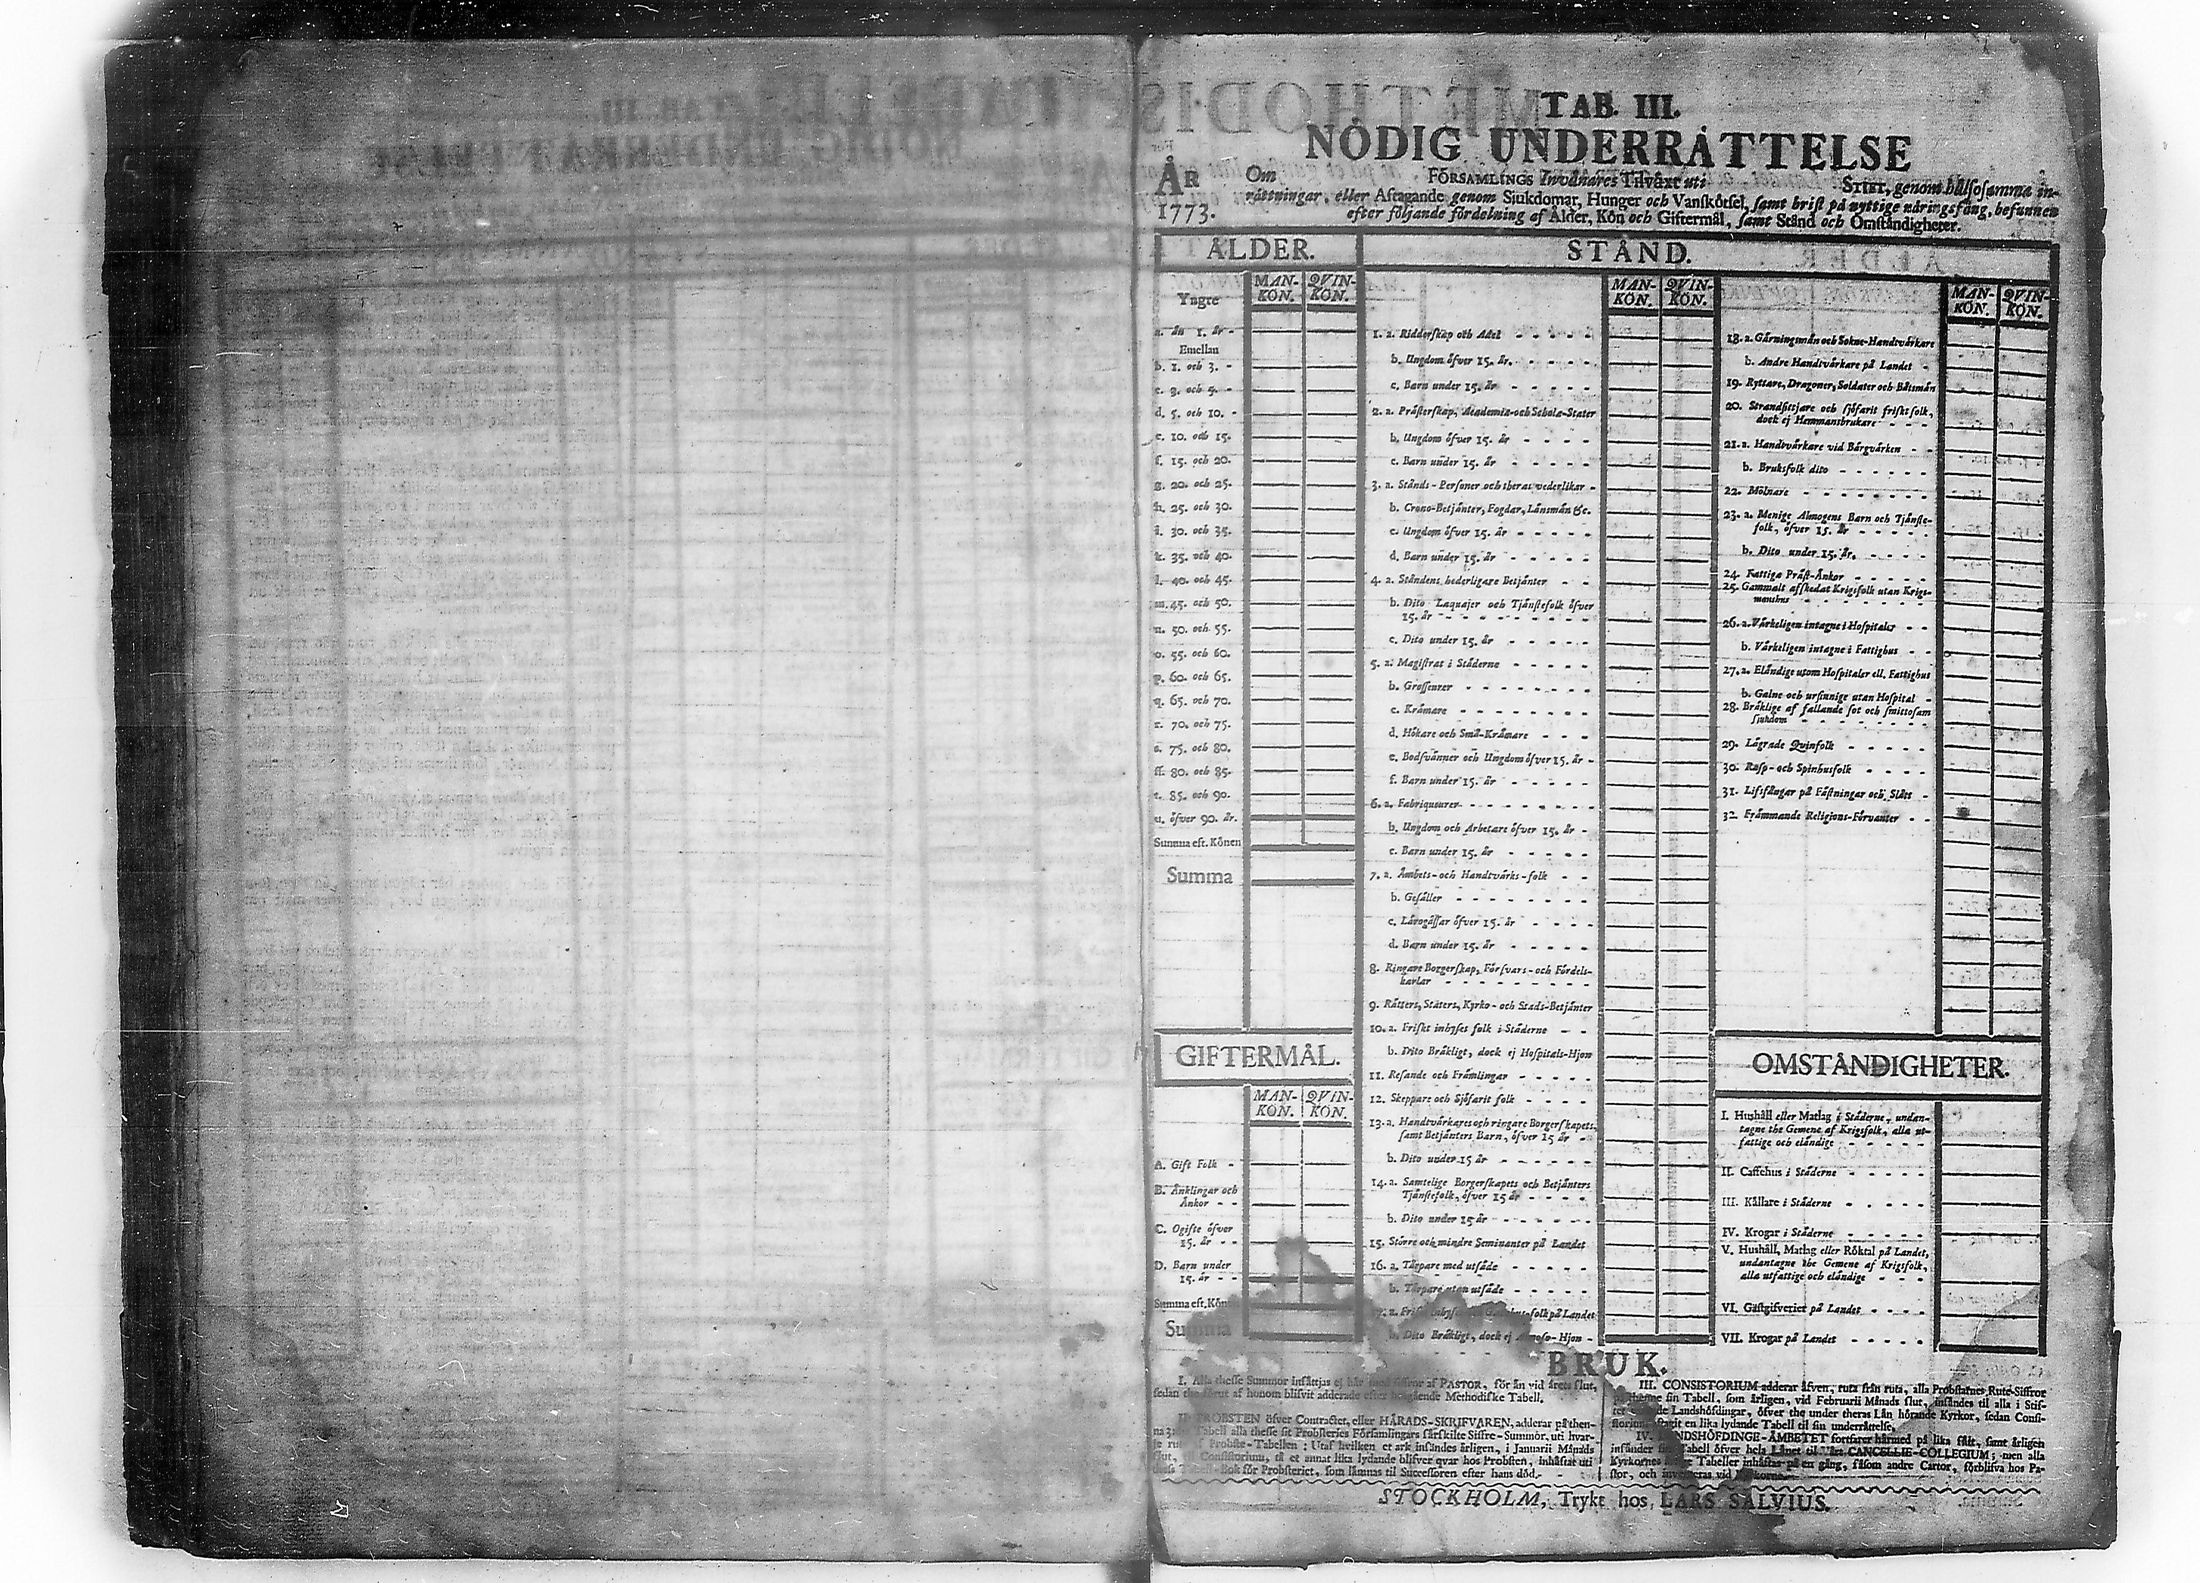 TAB. III.
NÖDIG UNDERRÅTTELSE
ÅR Om FÖRSAMLINGS Invånares Tilväxt uti STIFT, genom hälsosamma in-
1773. råttningar, eller Aftagande genom Siukdomar, Hunger och Vanskötsel, samt brist på nyttige näringsfång, befunnen
efter följande fördelning af Ålder, Kön och Giftermål, samt Stånd och Omständigheter.
ÅLDER.
MAN-KÖN. QVIN-KÖN.
Yngre
a. än 1. år -
Emellan
b. 1. och 3. -
c. 3. och 5. -
d. 5. och 10. -
e. 10. och 15.
f. 15. och 20.
g. 20. och 25.
h. 25. och 30.
i. 30. och 35.
k. 35. och 40.
l. 40. och 45.
m. 45. och 50.
n. 50. och 55.
o. 55. och 60.
p. 60. och 65.
q. 65. och 70.
r. 70. och 75.
s. 75. och 80.
ss. 80. och 85.
t. 85. och 90.
u. öfver 90. år.
Summa eft. Könen
Summa
GIFTERMÅL.
MAN-KÖN. QVIN-KÖN.
A. Gift Folk -
B. Änklingar och
Änkor - -
C. Ogifte öfver
15. år - -
D. Barn under
15. år - -
Summa eft. Kön
Summa
STÅND.
MAN-KÖN. QVIN-KÖN.
1. a. Ridderskap och Adel - - - - -
b. Ungdom öfver 15. år. - - - - -
c. Barn under 15. år - - - - -
2. a. Prästerskap, Academiæ-och Schola-Stater
b. Ungdom öfver 15. år - - - -
c. Barn under 15. år - - - - -
3. a. Stånds-Personer och theras vederlikar -
b. Crono-Betjänter, Fogdar, Länsmän &c.
c. Ungdom öfver 15. år - - - - -
d. Barn under 15. år - - - - -
4. a. Ståndens hederligare Betjänter - -
b. Dito Laquajer och Tjänstefolk öfver
15. år - - - - - - - -
c. Dito under 15. år - - - - -
5. a. Magistrat i Städerne - - - - -
b. Grossenrer - - - - - - -
c. Krämare - - - - - - - -
d. Hökare och Små-Krämare - - -
e. Bodsvänner och Ungdom öfver 15. år -
f. Barn under 15. år - - - - -
6. a. Fabriqueurer - - - - - - -
b. Ungdom och Arbetare öfver 15. år -
c. Barn under 15. år - - - - -
7. a. Ämbets-och Handtvärks-folk - -
b. Gesäller - - - - - - - -
c. Lärogåssar öfver 15. år - - - -
d. Barn under 15. år - - - - -
8. Ringare Borgerskap, Försvars-och Fördels-
karlar - - - - - - - - -
9. Rätters, Staters, Kyrko-och Stads-Betjänter
10. a. Friskt inhyses folk i Städerne - -
b. Dito Bräkligt, dock ej Hospitals-Hjon
11. Resande och Främlingar - - - - -
12. Skeppare och Sjöfarit folk - - - - -
13. a. Handtvärkares och ringare Borgerskapets,
samt Betjänters Barn, öfver 15 år -
b. Dito under 15 år - - - - -
14. a. Samtelige Borgerskapets och Betjänters
Tjänstefolk, öfver 15 år - - - -
b. Dito under 15 år - - - - - -
15. Större och mindre Seminanter på Landet
16. a. Torpare med utsäde - - - - -
b. Torpare utan utsäde - - - - -
folk på Landet
b. Dito Bräkligt, dock ej -Hjon -
MAN-KÖN. QVIN-KÖN.
18. a. Gärningsmän och Sokne-Handtvärkare
b. Andre Handtvärkare på Landet -
19. Ryttare, Dragoner, Soldater och Båtsmän
20. Strandsittjare och sjöfarit friskt folk,
dock ej Hemmansbrukare - - -
21. a. Handtvärkare vid Bärgvärken - -
b. Bruksfolk dito - - - - - -
22. Mölnare - - - - - - - -
23. a. Menige Almogens Barn och Tjänste-
folk, öfver 15. år - - - - -
b. Dito under 15. år. - - - -
24. Fattiga Präst-Änkor - - - - - -
25. Gammalt afskedat Krigsfolk utan Krigs-
manshus - - - - - - - -
26. a. Värkeligen intagne i Hospitaler - -
b. Värkeligen intagne i Fattighus - -
27. a. Eländige utom Hospitaler ell. Fattighus
b. Galne och ursinnige utan Hospital -
28. Bräklige af fallande sot och smittosam
siukdom - - - - - - - -
29. Lägrade Qvinfolk - - - - -
30. Rasp-och Spinhusfolk - - - -
31. Lifsfångar på Fästningar och Slått - -
32. Främmande Religions-Förvanter - -
OMSTÅNDIGHETER.
I. Hushåll eller Matlag i Städerne, undan-
tagne the Gemene af Krigsfolk, alla ut-
fattige och eländige - - - - -
II. Caffehus i Städerne - - - - -
III. Källare i Städerne - - - - -
IV. Krogar i Städerne - - - - -
V. Hushåll, Matlag eller Röktal på Landet,
undantagne the Gemene af Krigsfolk,
alla utfattige och eländige - - -
VI. Gästgifverier på Landet - - - -
VII. Krogar på Landet - - - - -
BRUK.
I. Alla thesse Summor insättjas ej här af PASTOR, för än vid årets slut,
sedan the förut af honom blifvit adderade efter Methodiske Tabell.
II. PROBSTEN öfver Contractet, eller HÄRADS-SKRIFVAREN, adderar på then-
na Tabell alla thesse sit Probsteries Församlingars särskilte Siffre-Summor, uti hvar-
je Probste-Tabellen; Utaf hvilken et ark insändes årligen, i Januarii Månads
slut, Consistorium, så et annat lika lydande blifver qvar hos Probsten, inhäftat uti
Bok för Probsteriet, som lämnas til Successoren efter hans död.
III. CONSISTORIUM adderar äfven, ruta från ruta, alla Probstarnes Rute-Siffror
sin Tabell, som årligen, vid Februarii Månads slut, insändes til alla i Stif-
Landshöfdingar, öfver the under theras Län hörande Kyrkor, sedan Consi-
storium en lika lydande Tabell til sin underrättelse.
IV. LANDSHÖFDINGE-ÄMBETET fortfarer härmed på lika sätt, samt årligen
insänder Tabell öfver hela Länet til CANCELLIE-COLLEGIUM; men alla
Kyrkornes Tabeller inhäftas på en gång, såsom andre Cartor, förblifva hos Pa-
stor, och vid
STOCKHOLM, Trykt hos LARS SALVIUS.